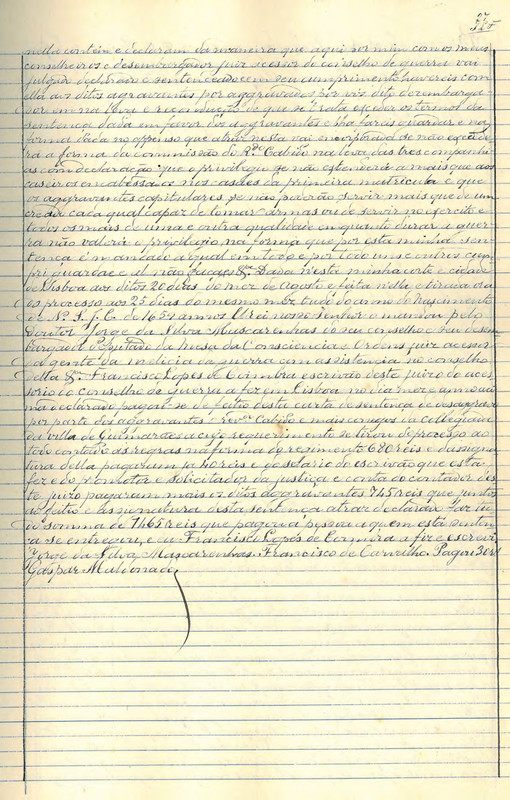 nella contem e declaram da maneira que aqui por mim com os meus
conselheiros e desembargador juiz acessor do conselho de guerra vai
julgado declarado e sentenceado em seu cumprimento havereis com
ella aos ditos aggravantes por aggravados por vós dito desembarga-
dor em na leva e reconducção de que se trata exceder os termos da
sentença dada em favor dos aggravantes e lha fareis guardar e na
forma dada no appenso que atraz nesta vai encorporada se não exceda
rá a forma da commissão do R.do Cabido na leva das tres companhi-
as com declaração que o privilegio se não estenderá a mais que aos
caseiros encabeçados nos casaes da primeira matricula e que
os aggravantes capitulares se não poderão servir mais de que de um
creado cada qual capaz de tomar armas vindo servir no exercito e
todos os mais de uma e outra qualidade emquanto durar a guer-
ra não valerá o privilegio na forma que por esta minha sen-
tença é mandado a qual em todo e por todo uns e outros cum-
pri guardae e al não façaes. Dada n'esta minha corte e cidade
de Lisboa aos ditos 20 dias do mez de Agosto e feita nella e tirada via
do processo aos 25 dias do mesmo mez tudo do anno do Nascimento
de N.º S. J. C. de 1652 annos El rei nosso Senhor o mandou pelo
Doutor Jorge da Silva Mascarenhas do seu conselho e seu desem-
bargador e deputado da Mesa da Consciencia e Ordens juiz acessor
da gente da milicia da guerra com assistencia no conselho
della &. Francisco Lopes de Coimbra escrivão deste juizo do aces-
sorio do conselho de guerra a fez em Lisboa no dia mez e anno aci-
ma declarado pagou-se de feitio desta carta de sentença de desaggravo
por parte dos aggravantes rev.dos Cabido e mais conegos da Collegiada
da villa de Guimarães a cujo requerimento se tirou de processo ao
todo contado as regras na forma do regimento 680 reis e da assigna-
tura della pagaram 40 reis e do salario do escrivão que esta
fez e do promotor e solicitador da justiça e conta do contador des-
te juizo pagaram mais os ditos aggravantes 745 reis que juntos
ao feitio e assignatura desta sentença atraz declarado faz tu-
do somma de 1465 reis que pagou a pessoa a quem esta senten-
ça se entregou, e eu Francisco Lopes de Coimbra a fiz e escrevi
Jorge da Silva Mascarenhas. Francisco de Carvalho. Pagou 30 rs
Gaspar Maldonado